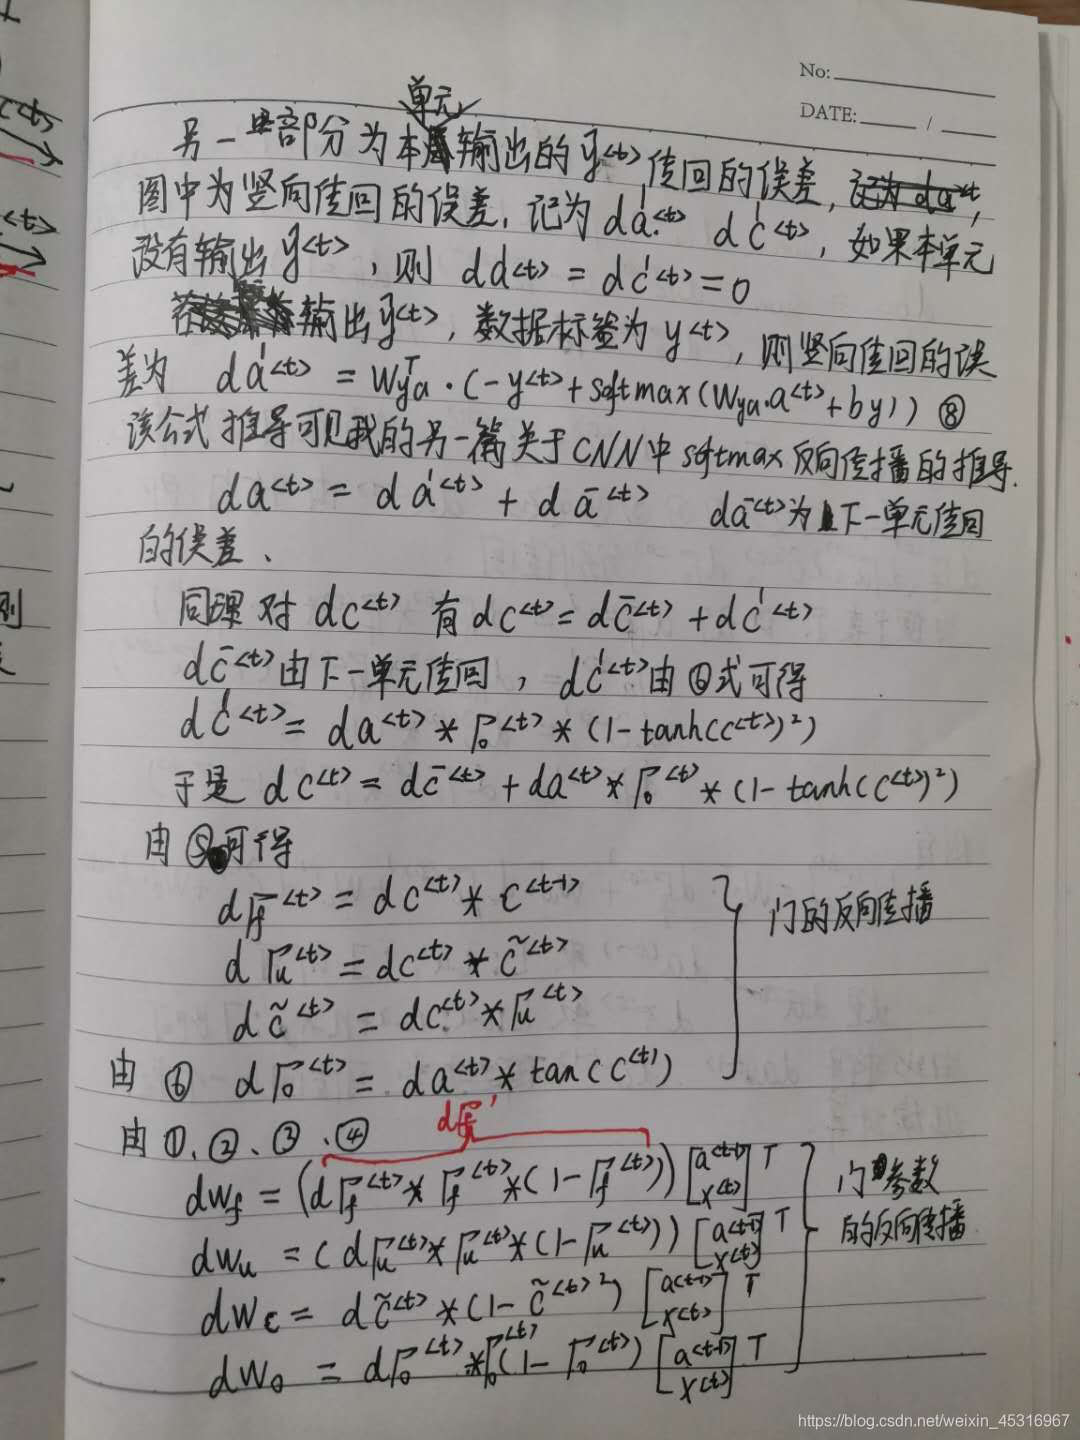 No:
DATE: /
单元
另一部分为本输出的ŷ<t>传回的误差,
图中为竖向传回的误差, 记为 da'<t> dc'<t>, 如果本单元
没有输出 ŷ<t>, 则 da'<t> = dc'<t> = 0
输出ŷ<t>, 数据标签为 y<t>, 则竖向传回的误
差为 da'<t> = Wya^T · (-y<t> + softmax(Wya·a<t> + by)) ⑧
该公式推导可见我的另一篇关于CNN中softmax反向传播的推导.
da<t> = da'<t> + dā<t> dā<t>为下一单元传回
的误差、
同理对 dc<t> 有 dc<t> = dc̄<t> + dc'<t>
dc̄<t>由下一单元传回, dc'<t>由⑥式可得
dc'<t> = da<t> * Γo<t> * (1-tanh(c<t>)²)
于是 dc<t> = dc̄<t> + da<t> * Γo<t> * (1-tanh(c<t>)²)
由⑤可得
dΓf<t> = dc<t> * c<t-1>
dΓu<t> = dc<t> * c̃<t>
dc̃<t> = dc<t> * Γu<t>
门的反向传播
由⑥ dΓo<t> = da<t> * tan(c<t>)
由①、②、③、④
dΓf'
dWf = (dΓf<t> * Γf<t> * (1-Γf<t>)) [a<t-1> x<t>]^T
dWu = (dΓu<t> * Γu<t> * (1-Γu<t>)) [a<t-1> x<t>]^T
dWc = dc̃<t> * (1-c̃<t>²) [a<t-1> x<t>]^T
dWo = dΓo<t> * Γo<t>(1-Γo<t>) [a<t-1> x<t>]^T
门参数
的反向传播
https://blog.csdn.net/weixin_45316967